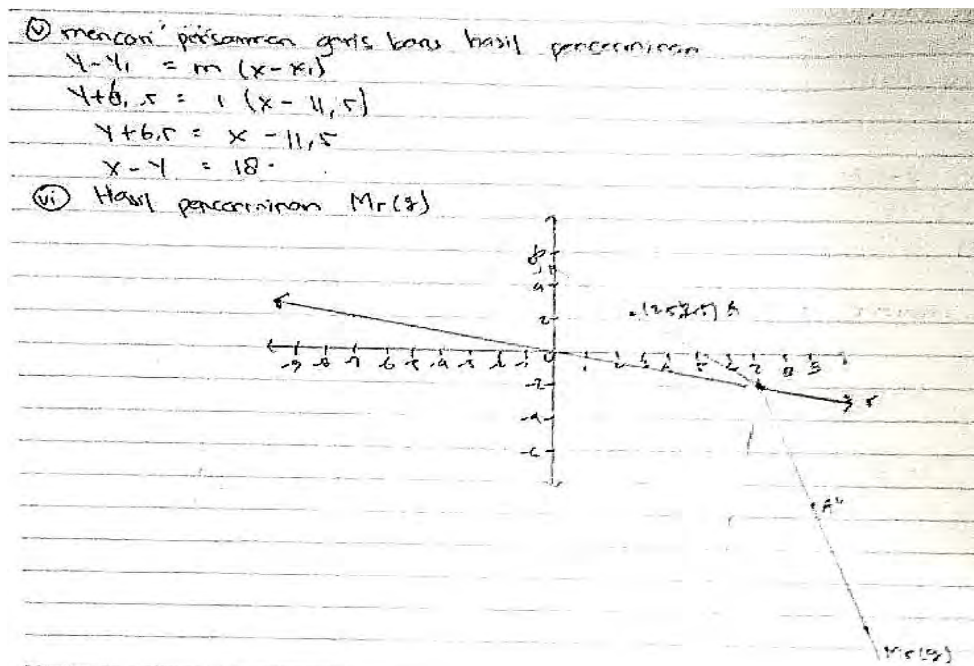 (v) mencari persamaan garis baru hasil pencerminan
y-y1 = m (x-x1)
y+6,5 = 1 (x-11,5)
y+6,5 = x -11,5
x-y = 18.
(vi) Hasil pencerminan Mr(g)
4
2
-9 -8 -7 -6 -5 -4 -3 -2 -1 0 1
-2
-4
-6
r
A"
Mr(g)